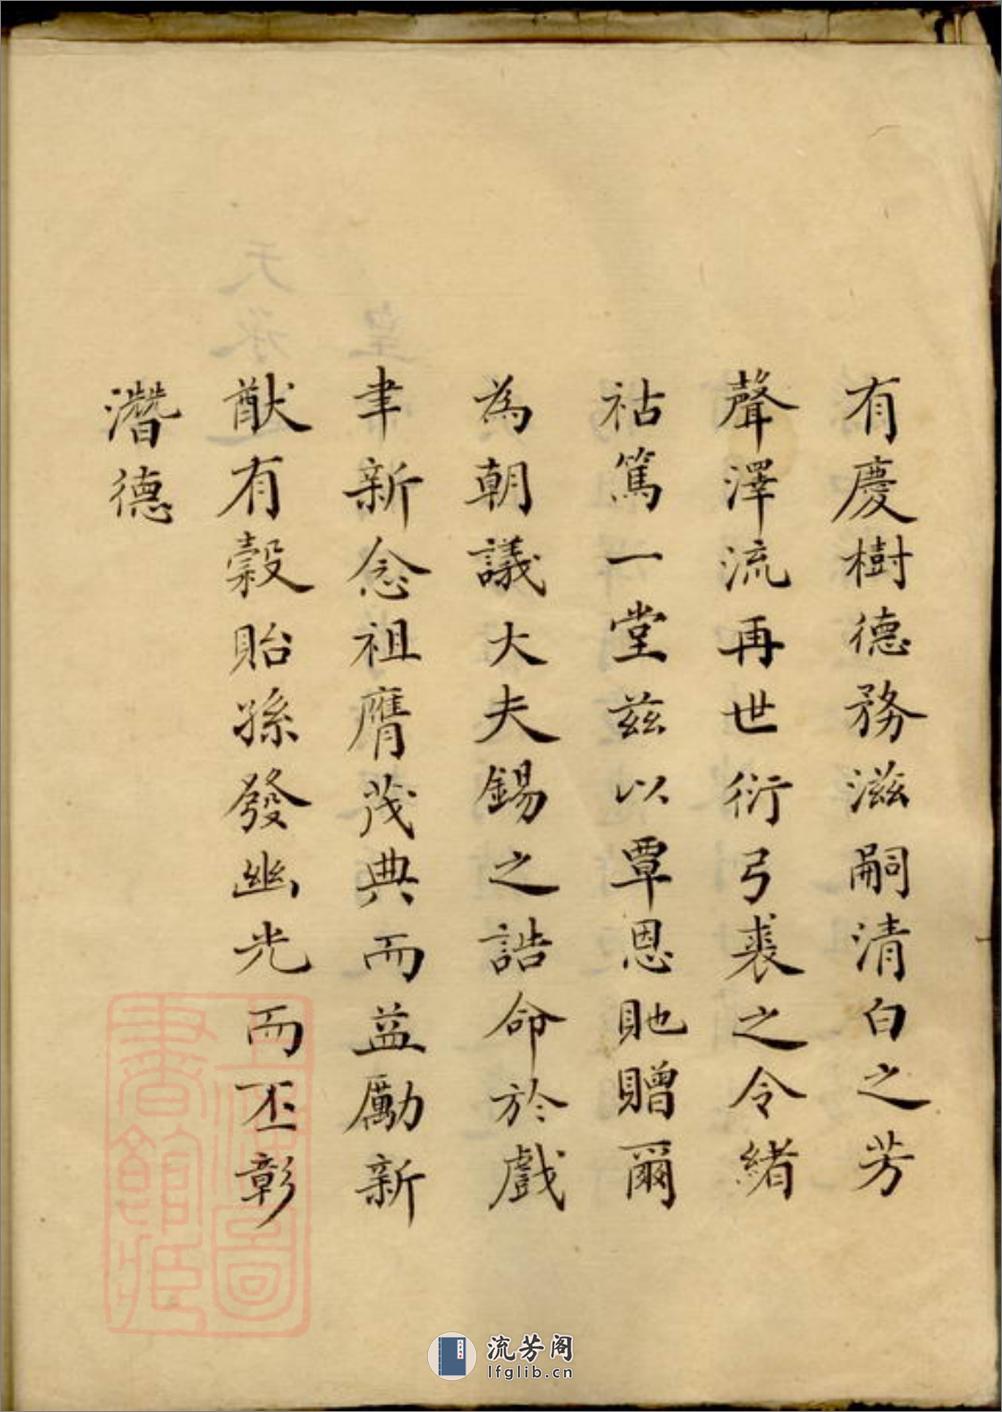 有慶樹德務滋嗣清白之芳
聲澤流再世衍弓裘之令緒
祜篤一堂兹以覃恩貤贈爾
為朝議大夫錫之誥命於戲
聿新念祖膺茂典而益勵新
猷有穀貽孫發幽光而丕彰
潛德
天承
皇
圖書館藏
流芳阁
lfglib.cn